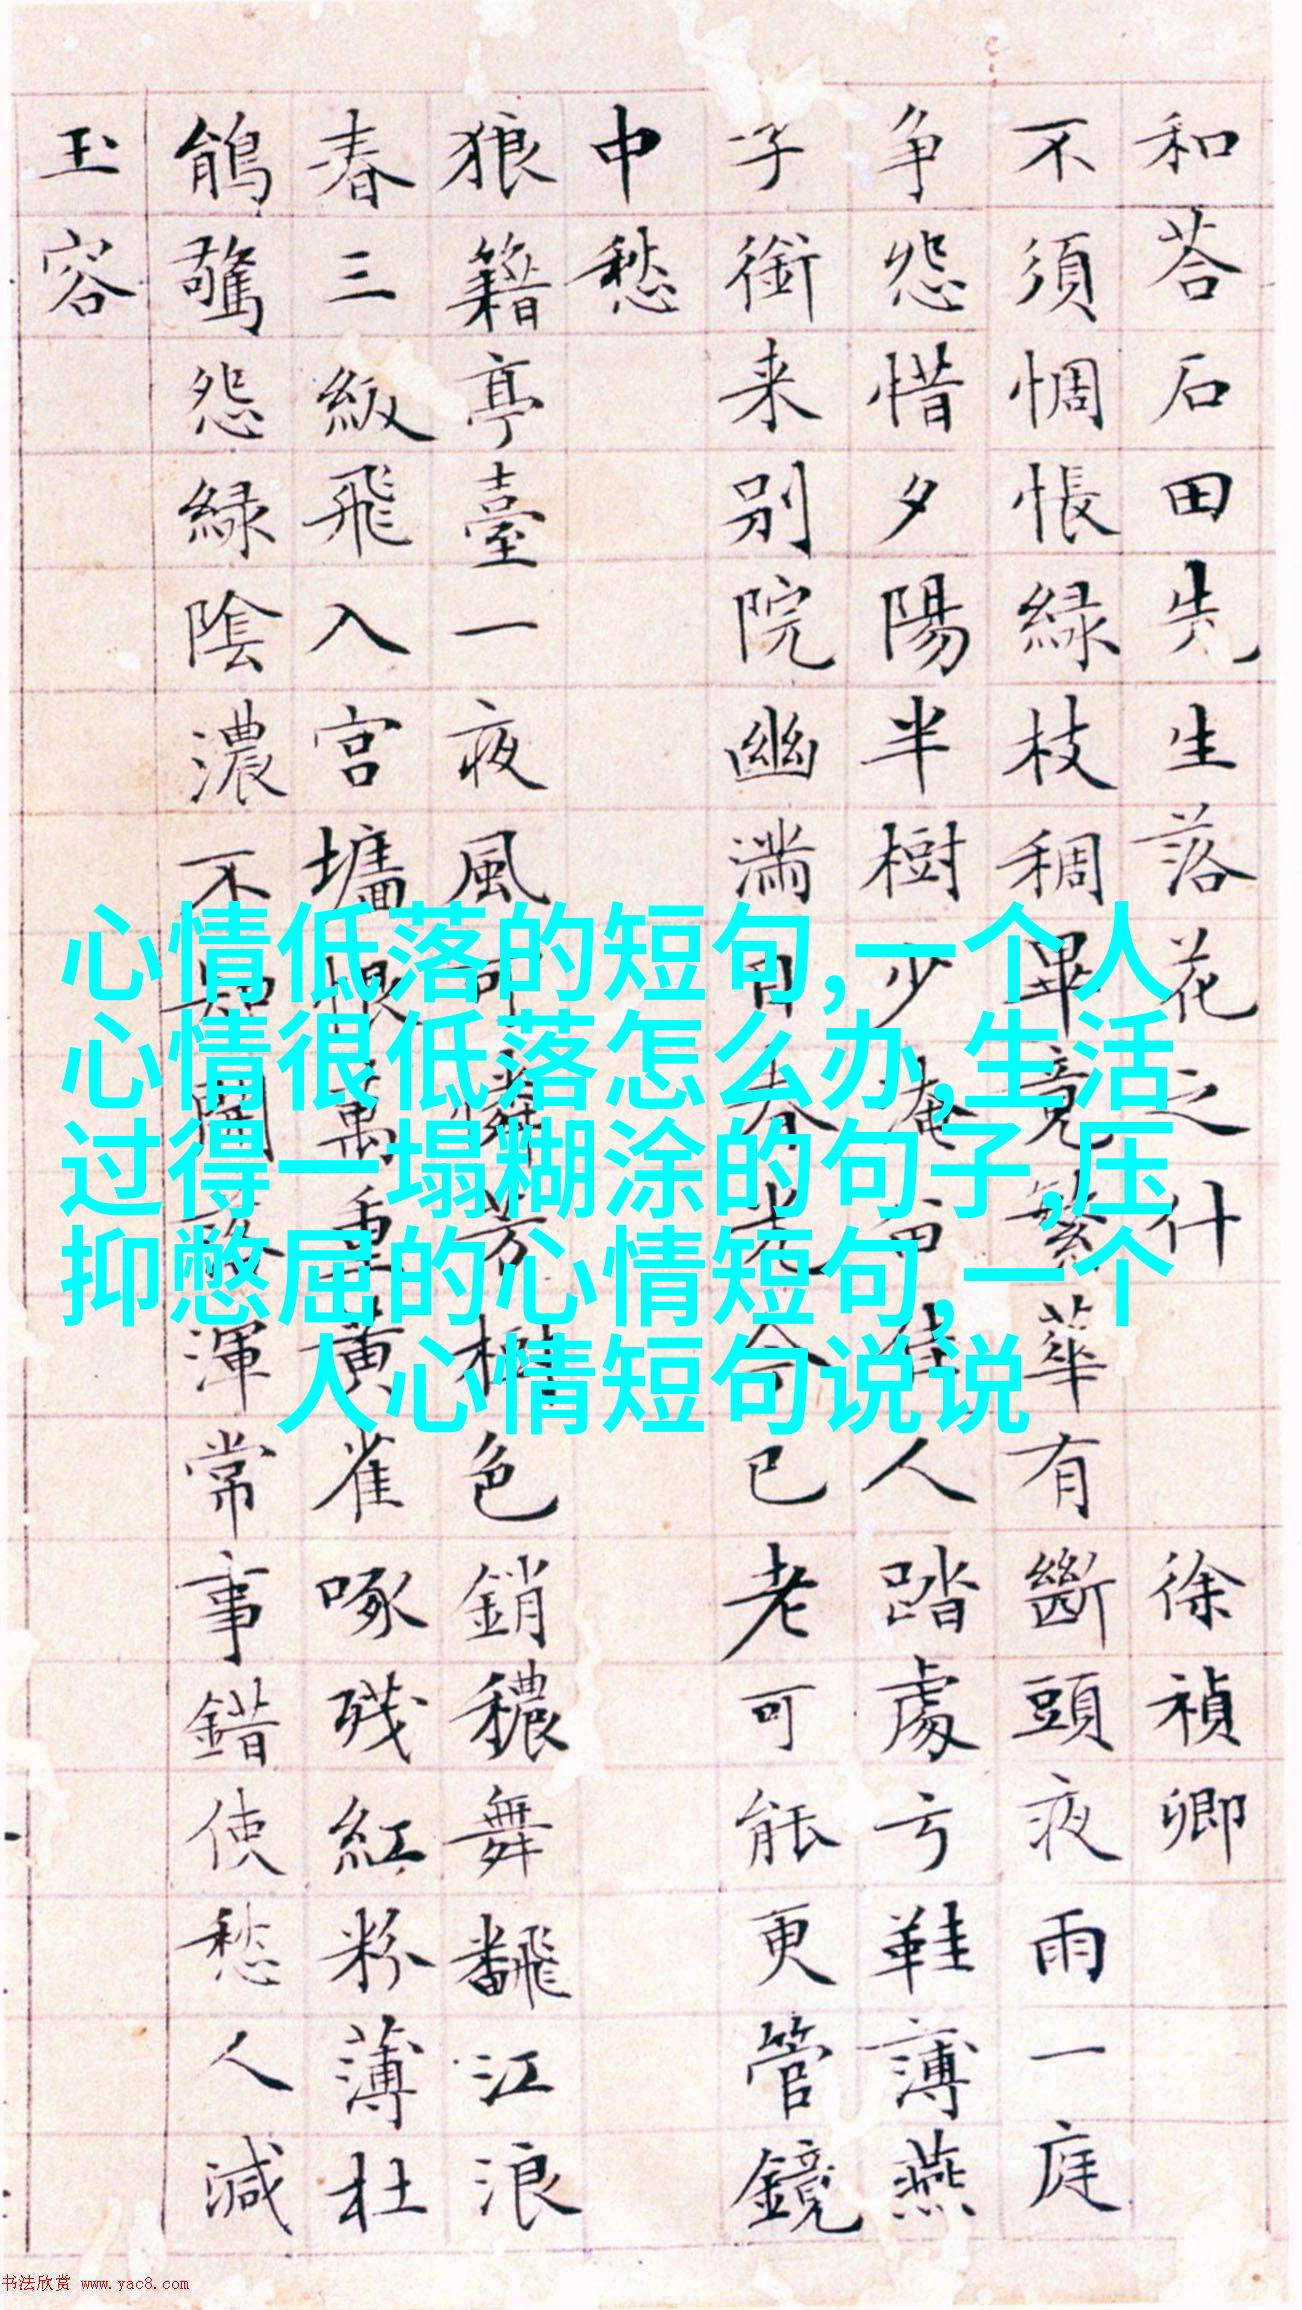 和荅石田先生落花之什 徐禎卿
不須惆悵綠枝稠畢竟繁華有斷頭夜雨一庭
争怨惜夕陽半樹少淹留佳人踏處弓鞋薄燕
子銜来別院幽滿目春光今已老可能更管鏡
中愁
狼籍亭臺一夜風可憐芳樹色銷穠舞飜江浪
春三級飛入宮墻恨萬重黄雀啄殘紅粉薄杜
鵑驚怨緑陰濃不知開落渾常事錯使愁人減
玉容
心情低落的短句,一个人
心情很低落怎么办,生活
过得一塌糊涂的句子,压
抑憋屈的心情短句,一个
人心情短句说说
书法欣赏 www.yac8.com